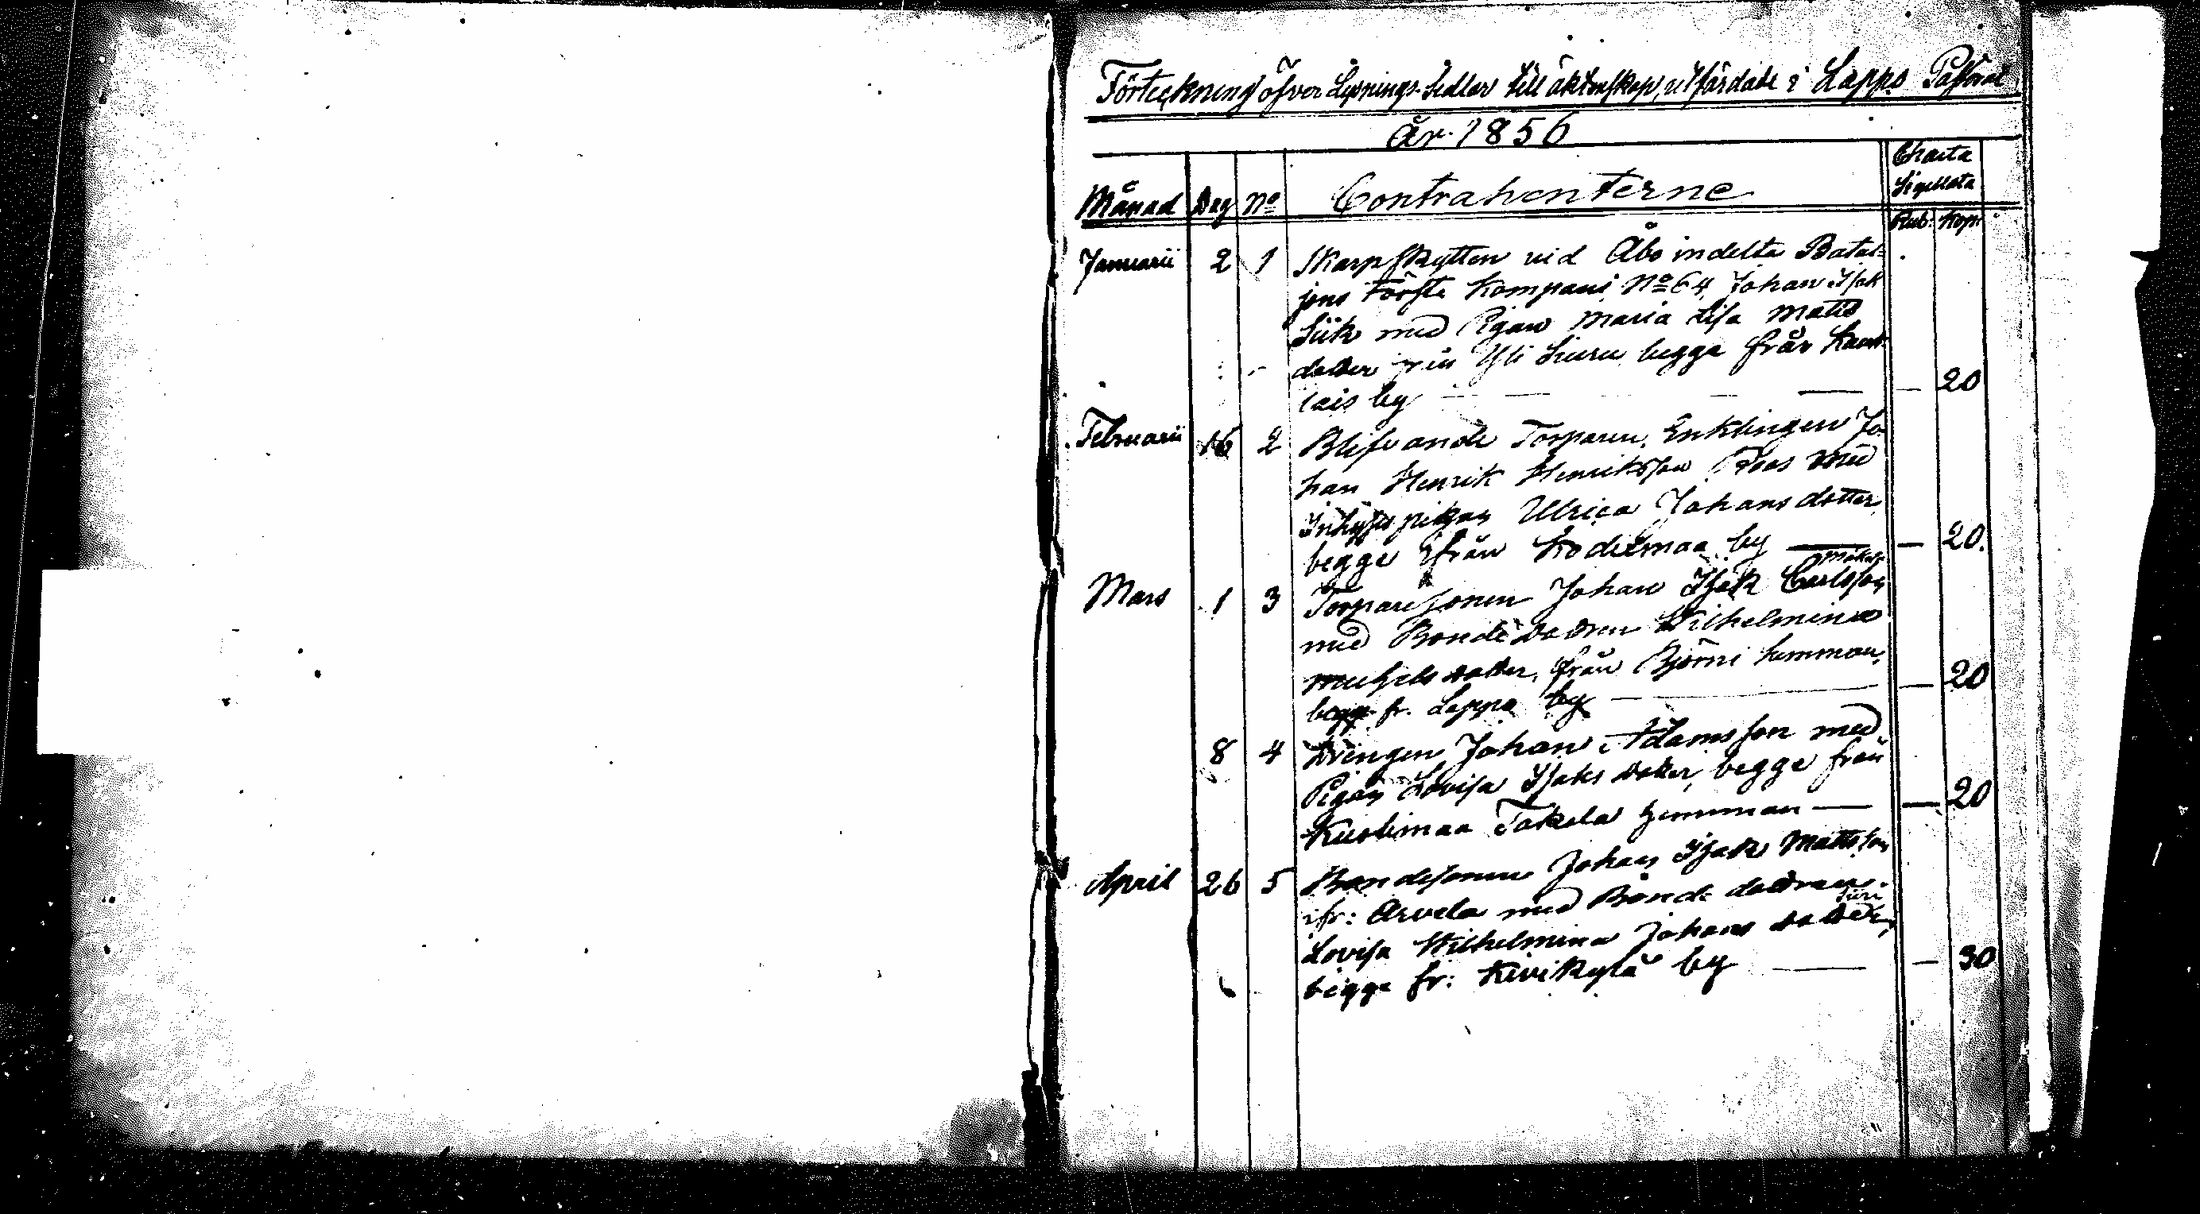 Förteckning öfver Lysnings-Sedlar till äktenskap, utfärdade i Lappo
År 1856
Månad Dag No Contrahenterne Charta Sigillata
Rub: Kop:
Januarii 2 1 Skarpskytten vid Åbo indelta Batal-
jons Förste Kompani No 64 Johan Isak
Siik med Pigan Maria Lisa Matts
dotter Yli Siuru begge från Kant-
lais by — 20
Februarii 16 2 Blifvande Torparen, Enklingen Jo-
han Henrik Henriksson med
Inhyses pigan Ulrica Johansdotter
begge ifrån Kodesmaa by — 20.
Mars 1 3 Torparesonen Johan Isak Carlsson
med Bondedottren Wilhelmina
Michelsdotter, från Björni hemman,
begge fr. Lappo by — 20
8 4 Drengen Johan Adamsson med
Pigan Lovisa Isaksdotter, begge från
Kuolimaa Takala hemman — 20
April 26 5 Bondesonen Johan Isak Mattsson
ifr: Arvela med Bonde dottren
Lovisa Wilhelmina Johansdotter,
begge fr: Kivikylä by — 30